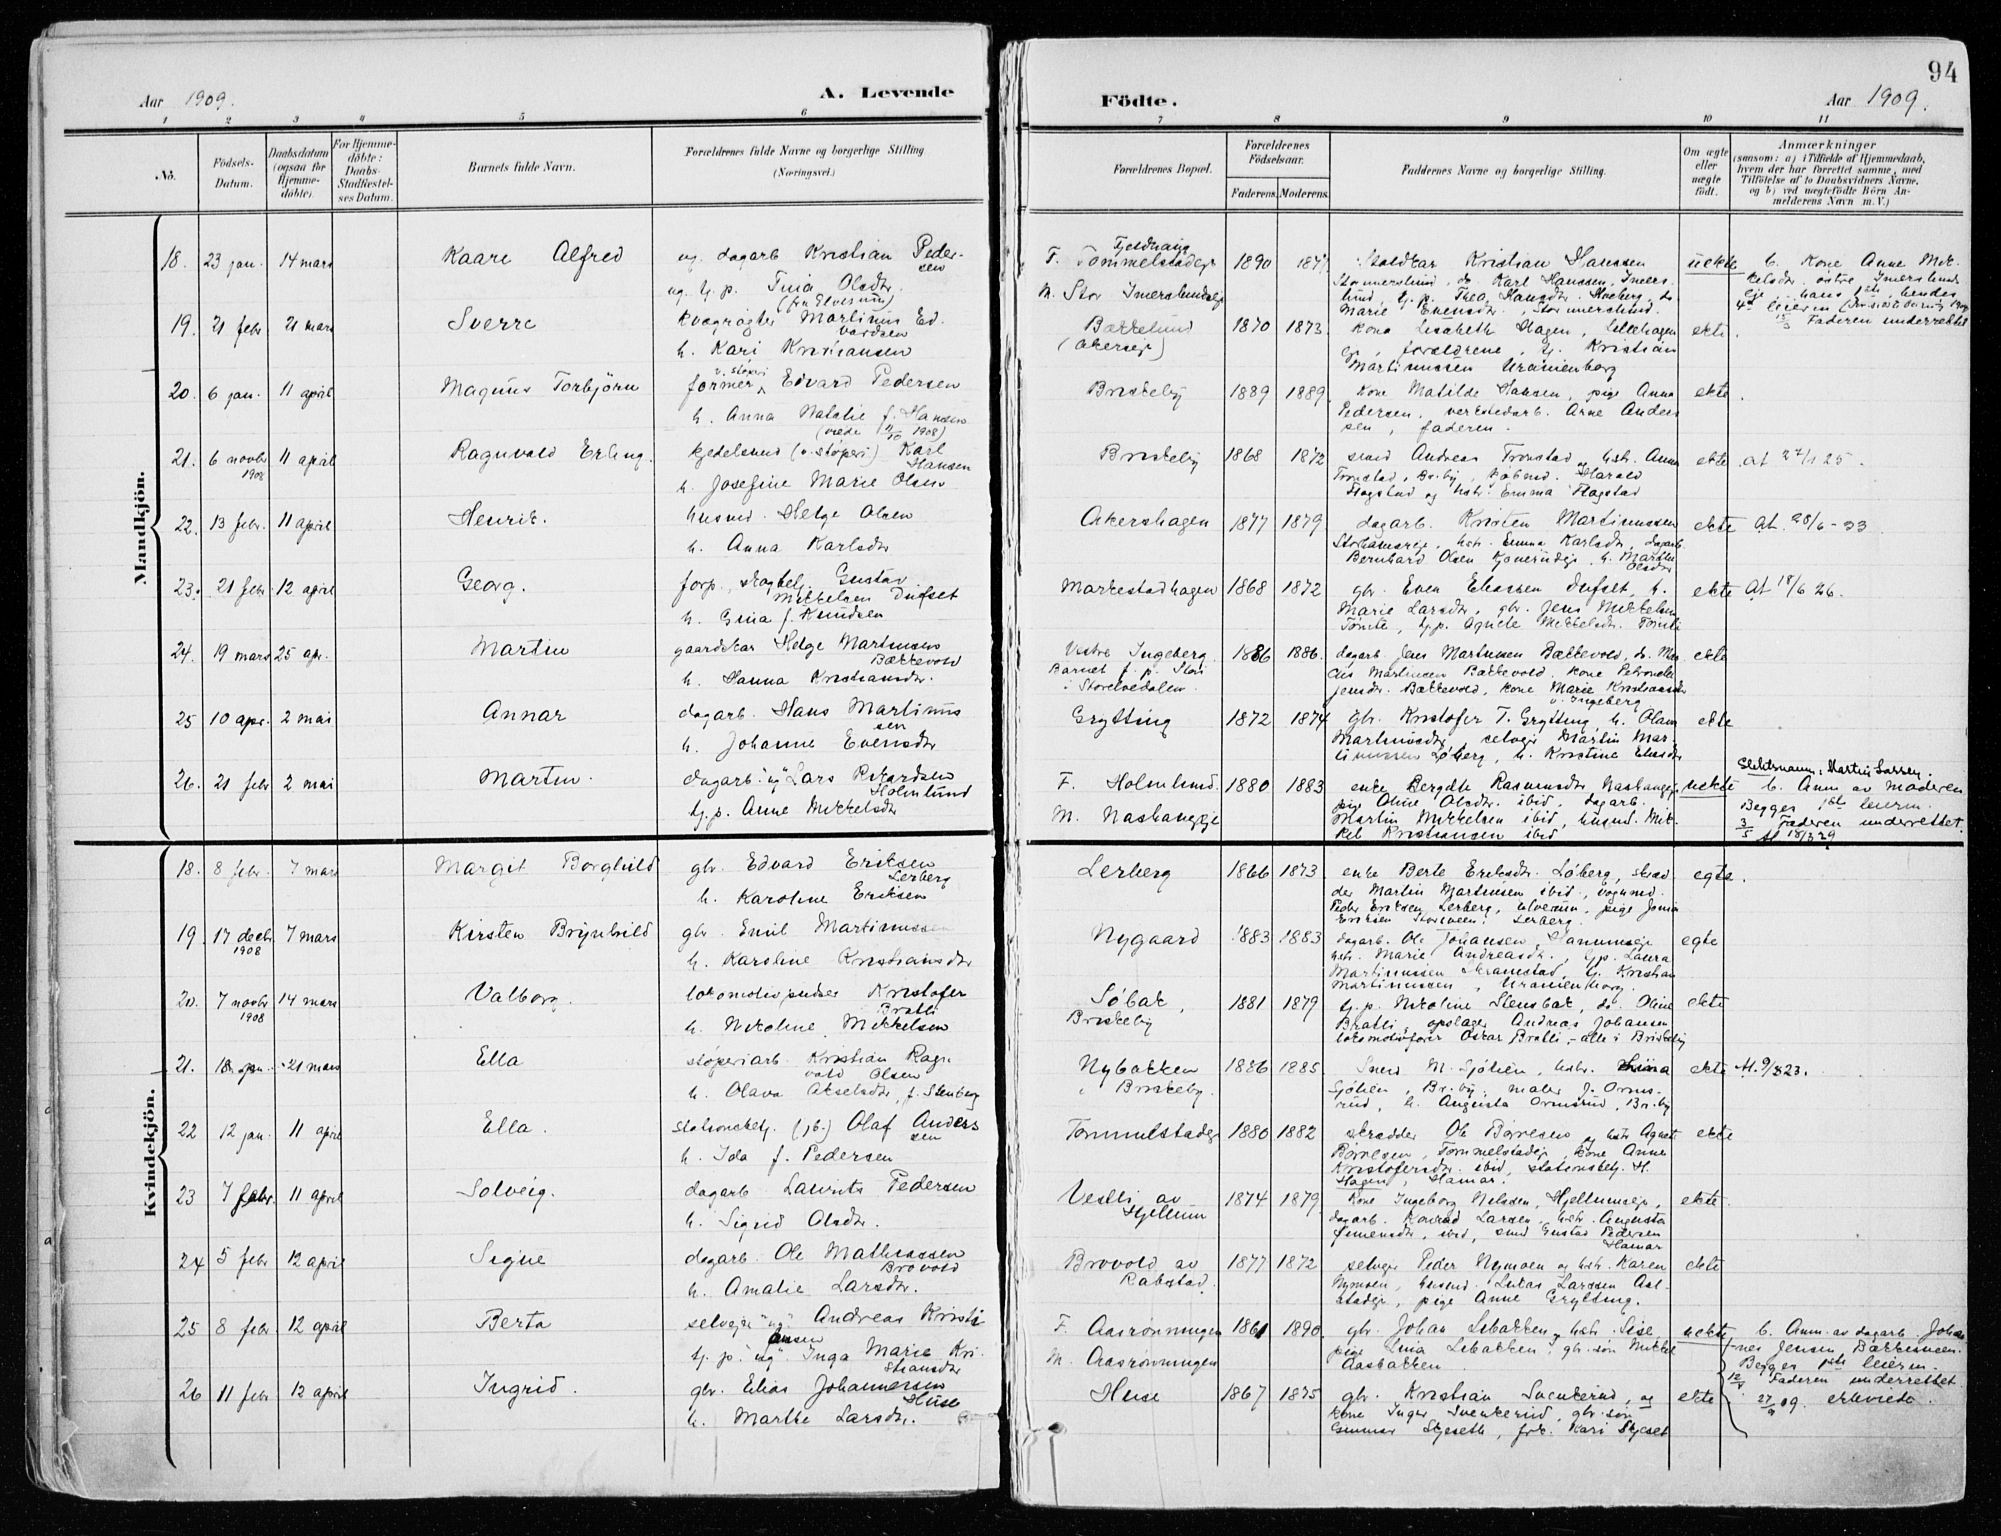 94
Aar 1909.
A. Levende
Födte.
Aar 1909.
1 2 3 4 5 6 7 8 9 10 11
No.
Födsels-Datum.
Daabsdatum (ogsaa for Hjemme-döbte).
For Hjemme-döbte: Daabs-Stadfæstel-ses Datum.
Barnets fulde Navn.
Forældrenes fulde Navne og borgerlige Stilling
(Næringsvei.)
Forældrenes Bopæl.
Forældrenes Födselsaar.
Faderens. Moderens.
Faddernes Navne og borgerlige Stilling.
Om ægte eller uægte födt.
Anmærkninger
(saasom: a) i Tilfælde af Hjemmedaab,
hvem der har forrettet samme, med
Tilföielse af to Daabsvidners Navne,
og b) ved uægtefödte Börn An-
melderens Navn m. V.)
Mandkjön.
18. 23 jan. 14 mars Kaare Alfred ug. dagarb Kristian Peder-
sen
ug. tj. p. Tina Olsdtr
(fra Elverum)
F. Tommelstadeje 1890
M. Stor Imerslundeje
Kristian Hansen
Karl Hanssen, Imers-
lund, tj. p. Thea Hansdtr.
Marie Evensdtr.
uekte
b. Kone Anne Mik-
kelsdtr. østre Imerslund
Faderen underrettet
19. 21 febr 21 mars Sverre kvægrøgter Martinus Ed-
vardsen
h. Kari Kristiansen
Bækkelund
(Akerseje)
1870 1873.
Kone Lisabeth Hagen, Lillehagen
eje, forældrene, tj. Kristian
Martinussen Uranienborg
ekte
20. 6 jan. 11 april Magnus Torbjörn former v. støperi Edvard Pedersen
h. Anna Natalie f. Hansen
(viede 11/10 1908)
Briskeby 1889 1889.
Kone Matilde Hansen, pige Anna
Pedersen, verkstedarb. Arne Anders
sen, faderen.
ekte
21. 6 novbr 1908 11 april Ragnvald Erling. kjedelsmed (v. støperi) Karl
Hansen
h. Josefine Marie Olsen
Briskeby 1868 1872
smed Andreas Tronstad og hstr. Anna
Tronstad, Br.by, Harald
Flagstad og hstr. Emma Flagstad
ekte at 27/1 25.
22. 13 febr. 11 april Henrik. husmd. Helge Olsen
h. Anna Karlsdtr
Akershagen 1877 1879
dagarb. Kristen Martinussen
Storhamareje, hstr. Emma Karlsdtr, dagarb.
Bernhard Olsen h. Marthe
Olsdtr
ekte at. 28/6-23
23. 21 febr 12 april Georg. forp. skogbet. Gustav
Mikkelsen Dufset
h. Gina f. Knudsen
Markestadhagen 1868 1872
gbr. Even Eliassen Dufset, h.
Marie Larsdtr, gbr. Jens Mikkelsen
Tømte, tj. p. Agnete Mikkelsdtr. Tømte
ekte At 18/6 26.
24. 19 mars 25 apr. Martin gaardskar Helge Martinsen
Bækkevold
h. Hanna Kristiansdtr.
Vestre Ingeberg.
Barnet f. p. Stor
i Storelvedalen.
1886 1886.
dagarb. Jens Martinsen Bækkevold, do. Mar-
Martinsen Bækkevold, Kone Petronelle
Jensdtr. Bækkevold, Kone Marie Kristiansdtr
v. Ingeberg
ekte
25 10 apr. 2 mai Annar dagarb. Hans Martinus
sen
h. Johanne Evensdtr
Grytting 1872 1874
Gbr. Kristofer T. Grytting, h. Olava
Martinusdtr, selvejer Martin Mar-
tinussen Løberg, h. Kristine Eliasdtr
ekte
26. 21 febr 2 mai Martin. dagarb. "ug" Lars Rikardsen
Holmlund
tj. p. Anne Mikkelsdtr
F. Holmlund.
M. Nashaugeje
1880 1883
enke Bergithe Rasmusdtr Nashaugeje
pige Oline Olsdtr. ibid, dagarb.
Martin Mikkelsen ibid, husmd. Mik-
kel Kristiansen ibid
uekte
Slektsnavn: Martin Larsen.
b. Anm. av Moderen
Begges 1ste leierm.
3/5 Faderen underrettet.
At 18/3 29
Kvindekjön.
18. 8 febr. 7 mars Margit Borghild gbr. Edvard Eriksen
Lerberg
h. Karoline Eriksen
Lerberg 1866 1873
enke Berte Eriksdtr. Løberg, skræd
der Martin Martinsen ibid, vognmd.
Peder Eriksen Lerberg, Elverum, pige Jonine
Eriksen Lerberg.
egte.
19. 17 decbr 1908 7 mars Kirsten Brynhild gbr. Emil Martinussen
h. Karoline Kristiansdtr
Nygaard 1883 1883
dagarb. Ole Johansen,
hstr. Marie Andreasdtr., tj. p. Laura
Martinussen tj. Kristian
Martinussen, Uranienborg.
egte
20. 7 novbr 1908 14 mars Valborg. lokomotivpudser Kristofer
Bratli
h. Nikoline Mikkelsen
Søbak,
Briskeby
1881 1879
tj. p. Nikoline Stensbak, do. Oline
Bratli, opslager Andreas Johansen
lokomotivfører Oskar Bratli, - alle i Briskeby
ekte
21. 18 jan. 21 mars Ella støperiarb. Kristian Ragn
vald Olsen
h. Olava Akselsdtr, f. Stenberg
Nybakken
i Briskeby.
1886 1885
Smed M. Sjölien, hstr.
Sjölien, Br.by, maler J. Orms-
rud, h. Augusta Ormsrud, Br.by
ekte At. 9/8 23.
22 12 jan. 11 april Ella. stationsbetj. (jb.) Olaf Anders
sen
h. Ida f. Pedersen
Tommelstadeje 1880 1882
skrædder Ole Børresen og hstr Agnete
Børresen, Tommelstadeje, Kone Anne
Kristofersdtr. ibid, stationsbetj. H.
Hagen, Hamar.
ekte
23 7 febr 11 april Solveig. dagarb. Laurits Pedersen
h. Sigrid Olsdtr.
Vestli av
Hjellum
1874 1879
Kone Ingeborg Nilsdtr, Hjellumeje,
dagarb. Konrad Larsen, hstr. Augusta
Simensdtr, ibid, smed Gustav Pedersen
Hamar
ekte.
24 5 febr 12 april Signe dagarb. Ole Mathiassen
Brovold
h. Amalie Larsdtr.
Brovold av
Rabstad.
1877 1872
selvejer Peder Nymoen og hstr. Karen
Nymoen, husmd. Lukas Larssen Aal-
stadeje, pige Anne Grytting.
ekte
25 8 febr 12 april Berta selvejer "ug" Andreas Kristi
ansen
tj. p. "ug". Inga Marie Kri
stiansdtr
F. Aasrønningen
M. Aasrønningen
1861 1890.
gbr. Johan Libakken, hstr. Lise,
pige Lina Libakken, gbr. søn Mikkel
Aasbakken
uekte
b. Anm. av dagarb. Johan
nes Jensen Bækkemoen.
Begges 1ste leierm.
12/4 Faderen underrettet
27/9 09. ektevidde.
26 11 febr 12 april Ingrid. gbr. Elias Johannessen
Huse
h. Marthe Larsdtr.
Huse 1867 1875
gbr. Kristian Svenkerud, og
Kone Inger Svenkerud, gbr. søn
Gunnar Skjeseth, frk. Kari Skjeset
ekte